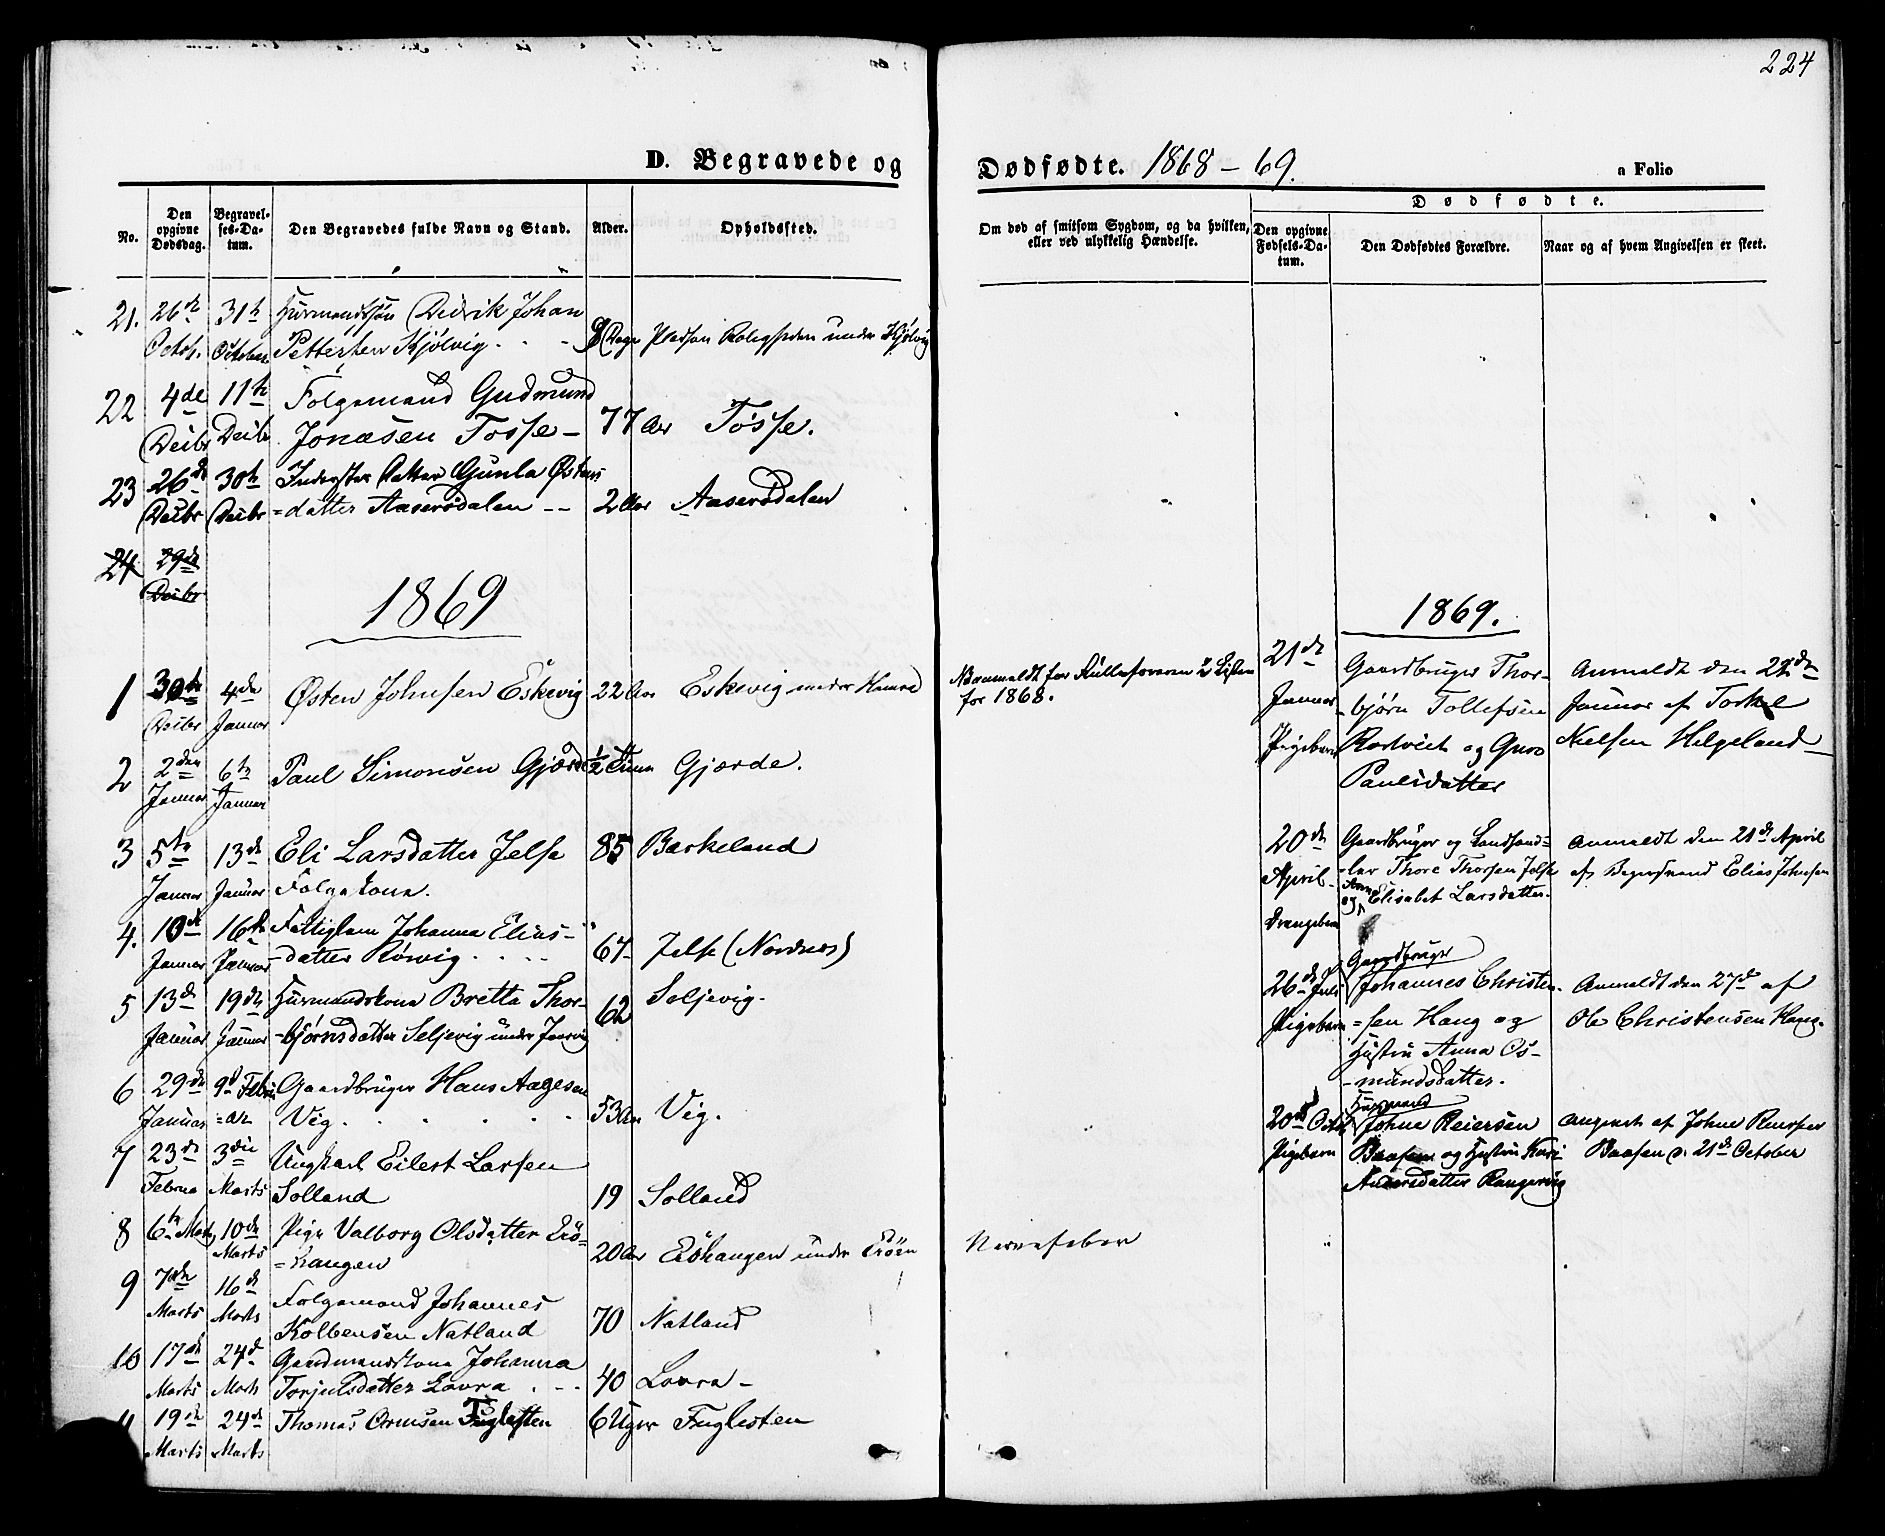 224
D. Begravede og Dødfødte. 1868-69.
a Folio
No.
Den opgivne Dødsdag.
Begravelses-Datum.
Den Begravedes fulde Navn og Stand.
Alder.
Opholdssted.
Om død af smitsom Sygdom, og da hvilken,
eller ved ulykkelig Hændelse.
Dødfødte.
Den opgivne Fødsels-Datum.
Den Dødfødtes Forældre.
Naar og af hvem Angivelsen er skeet.
21. 26de 31te Huusmandssøn Didrik Johan
Octob. October Pettersen Kjølvig. Dage Pladsen under Kjølvig
22 4de 11te Folgemand Gudmund
Decbr Decbr Jonasen Tøsse - 77 Aar Tøsse.
23 26de 30te Inderster Datter Gunla Østens
Decbr Decbr =datter Aaserødalen -- 2 Aar Aaserødalen
24 29de
Decbr
1869
1 30te 4de Østen Johnsen Eskevig 22 Aar Eskevig under
Decbr Januar
for 1868.
2 2den 6te Paul Simonsen Gjørde 1/2 Time Gjørde.
Januar Januar
3 5te 13de Eli Larsdatter Jelse 85 Barkeland
Januar Januar Folgekone.
4. 10de 16de Fattiglem Johanna Elias-
Januar Januar -datter Rørvig. 67 Jelse (Nordnes)
5 13de 19de Huusmandskone Bretta Thor- 62 Seljevig.
Januar Januar -bjørnsdatter Seljevig under
6 29de 9de Febru Gaardbruger Hans Aagesen
Januar =ar Vig. 53 Aar Vig.
7 23de 3die Ungkarl Eilert Larsen
Februa Marts Solland 19 Solland
8 6te Marts 10de Pige Valborg Olsdatter Erø-
Marts =hangen 20 Aar Erøhangen under Erøen Nervefeber
9 7de 16de Folgemand Johannes
Marts Marts Kolbensen Natland 70 Natland
10 17de 24de Gaardmandskone Johanna
Marts Marts Torjulsdatter Lovra 40 Lovra -
19de 24de Thomas Ormsen Fuglesten 6 Uger Fuglesten
Marts Marts
1869.
21de Gaardbruger Thor- Anmeldt den 22de
Januar -bjørn Tollefsen Januar af Torkel
Pigebarn og Guro Nielsen Helgeland
Paulsdatter
20de Gaardbruger og Landhand- Anmeldt den 21de April
April -ler Thore Thorsen Jelse af Elias Johnsen
Drengebarn og Anne Elisabet Larsdatter.
Gaardbruger
26de Juli Johannes Christen- Anmeldt den 27de af
Pigebarn =sen Haug og Ole Christensen Haug.
Hustru Anna Os-
-mundsdatter.
Huusmand
20de Octob Johne Reiersen Angivet af Johne
Pigebarn og Hustru Kari 21de October
Andersdatter